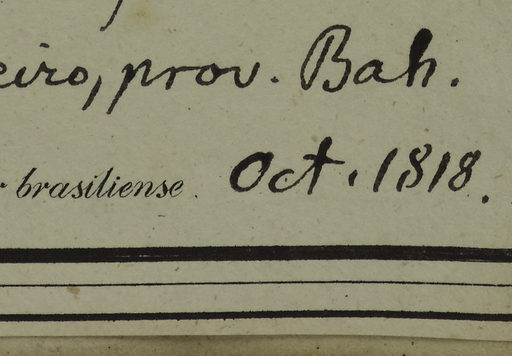 eiro, prov. Bah.
r brasiliense. Oct. 1818.